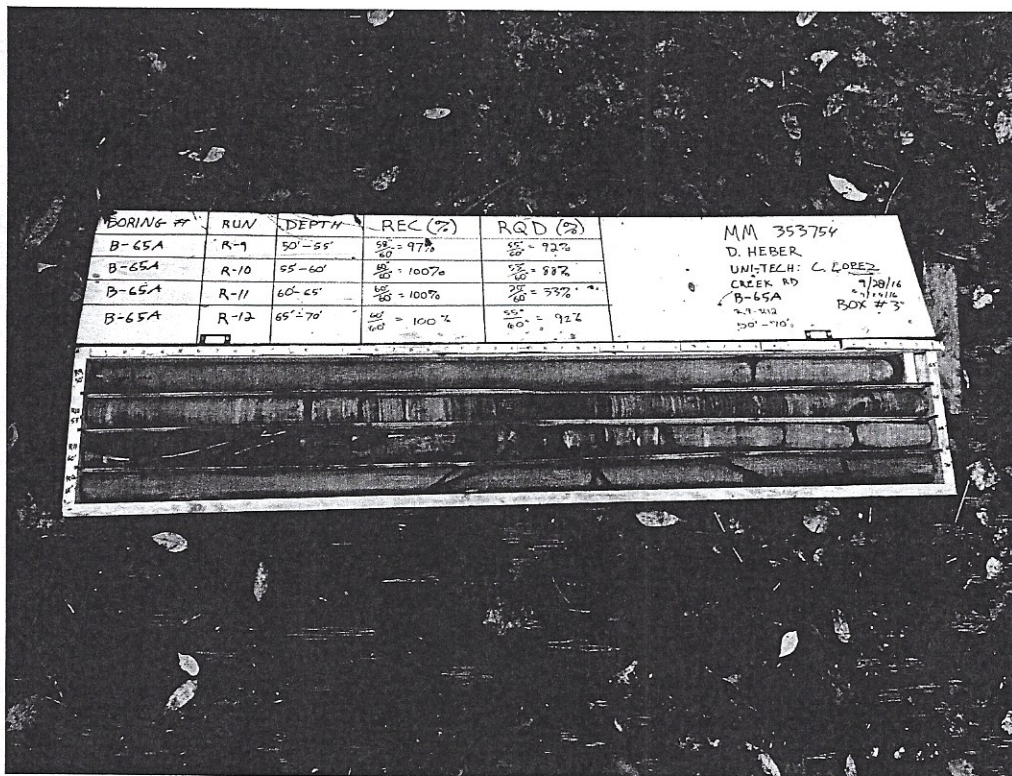 BORING # RUN DEPTH REC (%) RQD (%)
B-65A R-9 50'-55' 58"/60" = 97% 55"/60" = 92%
B-65A R-10 55'-60' 60"/60" = 100% 53"/60" = 88%
B-65A R-11 60'-65' 60"/60" = 100% /60" = 33%
B-65A R-12 65'-70' 60"/60" = 100% 55"/60" = 92%
MM 353754
D. HEBER
UNI-TECH: C. LOPEZ
CREEK RD 9/28/16
B-65A
R9-R12 BOX #3
50'-70'